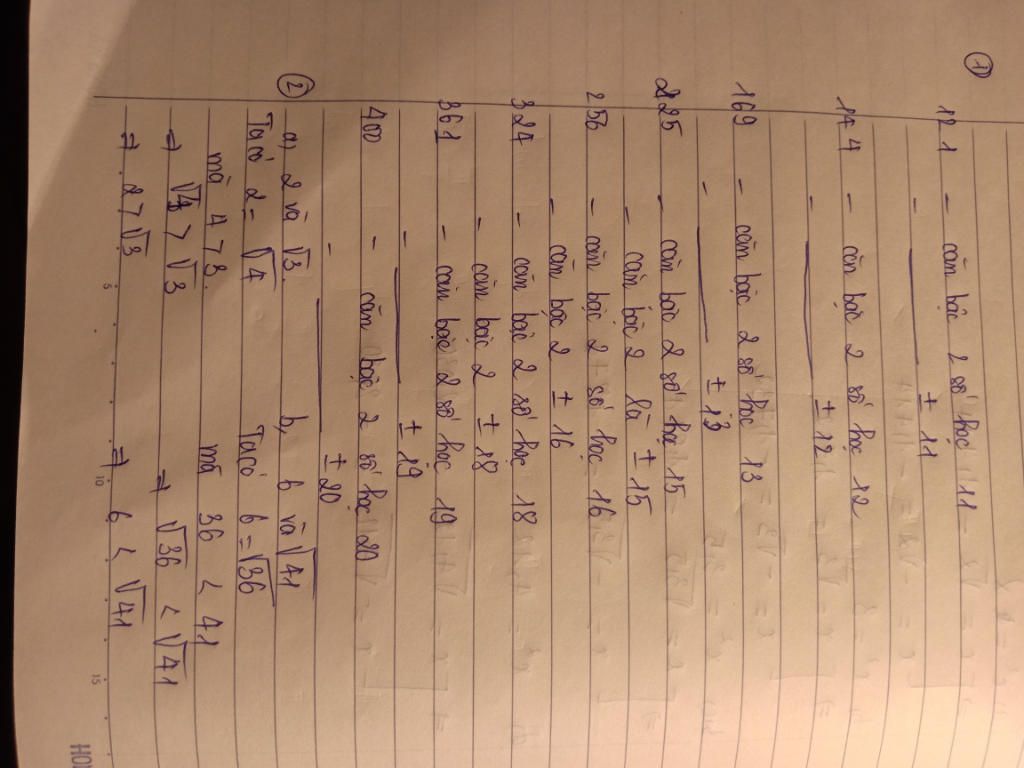 ①
121 - căn bậc 2 số học 11
- ± 11
144 - căn bậc 2 số học 12
- ± 12
169 - căn bậc 2 số học 13
- ± 13
225 - căn bậc 2 số học 15
- căn bậc 2 là ± 15
256 - căn bậc 2 số học 16
- căn bậc 2 ± 16
324 - căn bậc 2 số học 18
- căn bậc 2 ± 18
361 - căn bậc 2 số học 19
- ± 19
400 - căn bậc 2 số học 20
- ± 20
② a, 2 và √3. b, 6 và √41
Ta có 2 = √4 Ta có 6 = √36
mà 4 > 3. mà 36 < 41
⇒ √4 > √3 ⇒ √36 < √41
⇒ 2 > √3 ⇒ 6 < √41
5 10 15